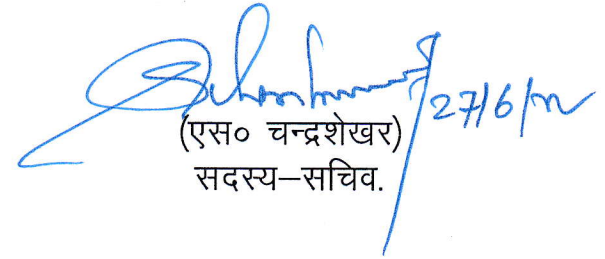 27/6/
(एस० चन्द्रशेखर)
सदस्य–सचिव.